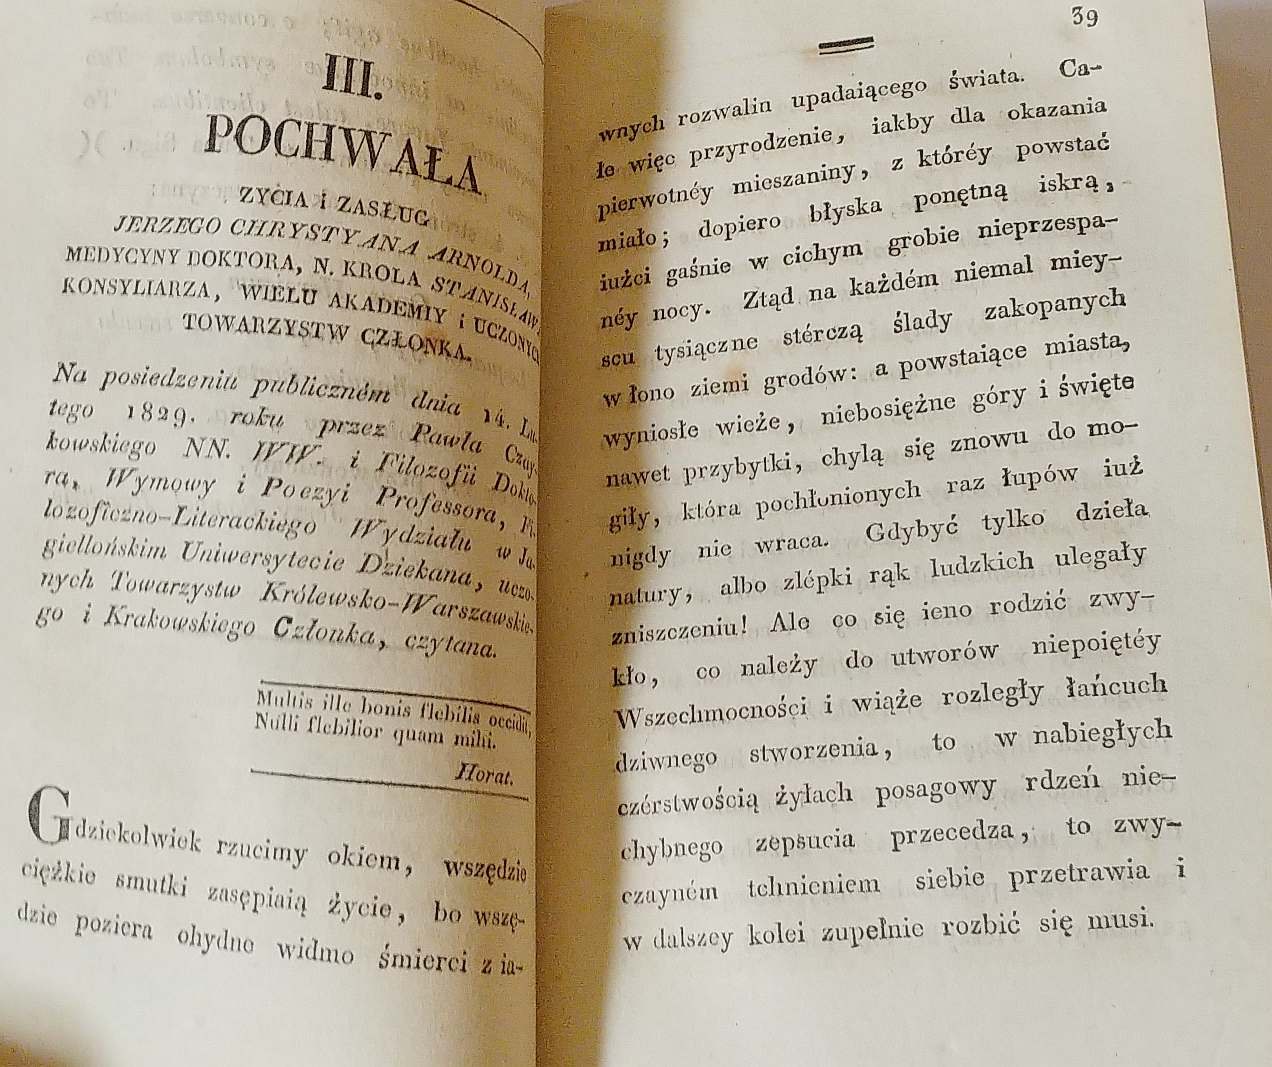 III.
POCHWAŁA
ZYCIA i ZASŁUG
JERZEGO CHRYSTYANA ARNOLDA,
MEDYCYNY DOKTORA, N. KROLA STANISŁAWA
KONSYLIARZA, WIELU AKADEMIY i UCZONYCH
TOWARZYSTW CZŁONKA.
Na posiedzeniu publiczném dnia 14. Lu-
tego 1829. roku przez Pawła Czay-
kowskiego NN. WW. i Filozofii Dokto-
ra, Wymowy i Poezyi Professora, Fi-
lozoficzno-Literackiego Wydziału w Ja-
giellońskim Uniwersytecie Dziekana, uczo-
nych Towarzystw Królewsko-Warszawskie-
go i Krakowskiego Członka, czytana.
Multis ille bonis flebilis occidit,
Nulli flebilior quam mihi.
Horat.
Gdziekolwiek rzucimy okiem, wszędzie
ciężkie smutki zasępiaią życie, bo wszę-
dzie poziera ohydne widmo śmierci z ia-
39
wnych rozwalin upadaiącego świata. Ca-
łe więc przyrodzenie, iakby dla okazania
pierwotnéy mieszaniny, z któréy powstać
miało; dopiero błyska ponętną iskrą,
iużci gaśnie w cichym grobie nieprzespa-
néy nocy. Ztąd na każdém niemal miey-
scu tysiączne stérczą ślady zakopanych
w łono ziemi grodów: a powstaiące miasta,
wyniosłe wieże, niebosiężne góry i święte
nawet przybytki, chylą się znowu do mo-
giły, która pochłonionych raz łupów iuż
nigdy nie wraca. Gdybyć tylko dzieła
natury, albo zlépki rąk ludzkich ulegały
zniszczeniu! Ale co się ieno rodzić zwy-
kło, co należy do utworów niepoiętéy
Wszechmocności i wiąże rozległy łańcuch
dziwnego stworzenia, to w nabiegłych
czérstwością żyłach posagowy rdzeń nie-
chybnego zepsucia przecedza, to zwy-
czayném tchnieniem siebie przetrawia i
w dalszey kolei zupełnie rozbić się musi.